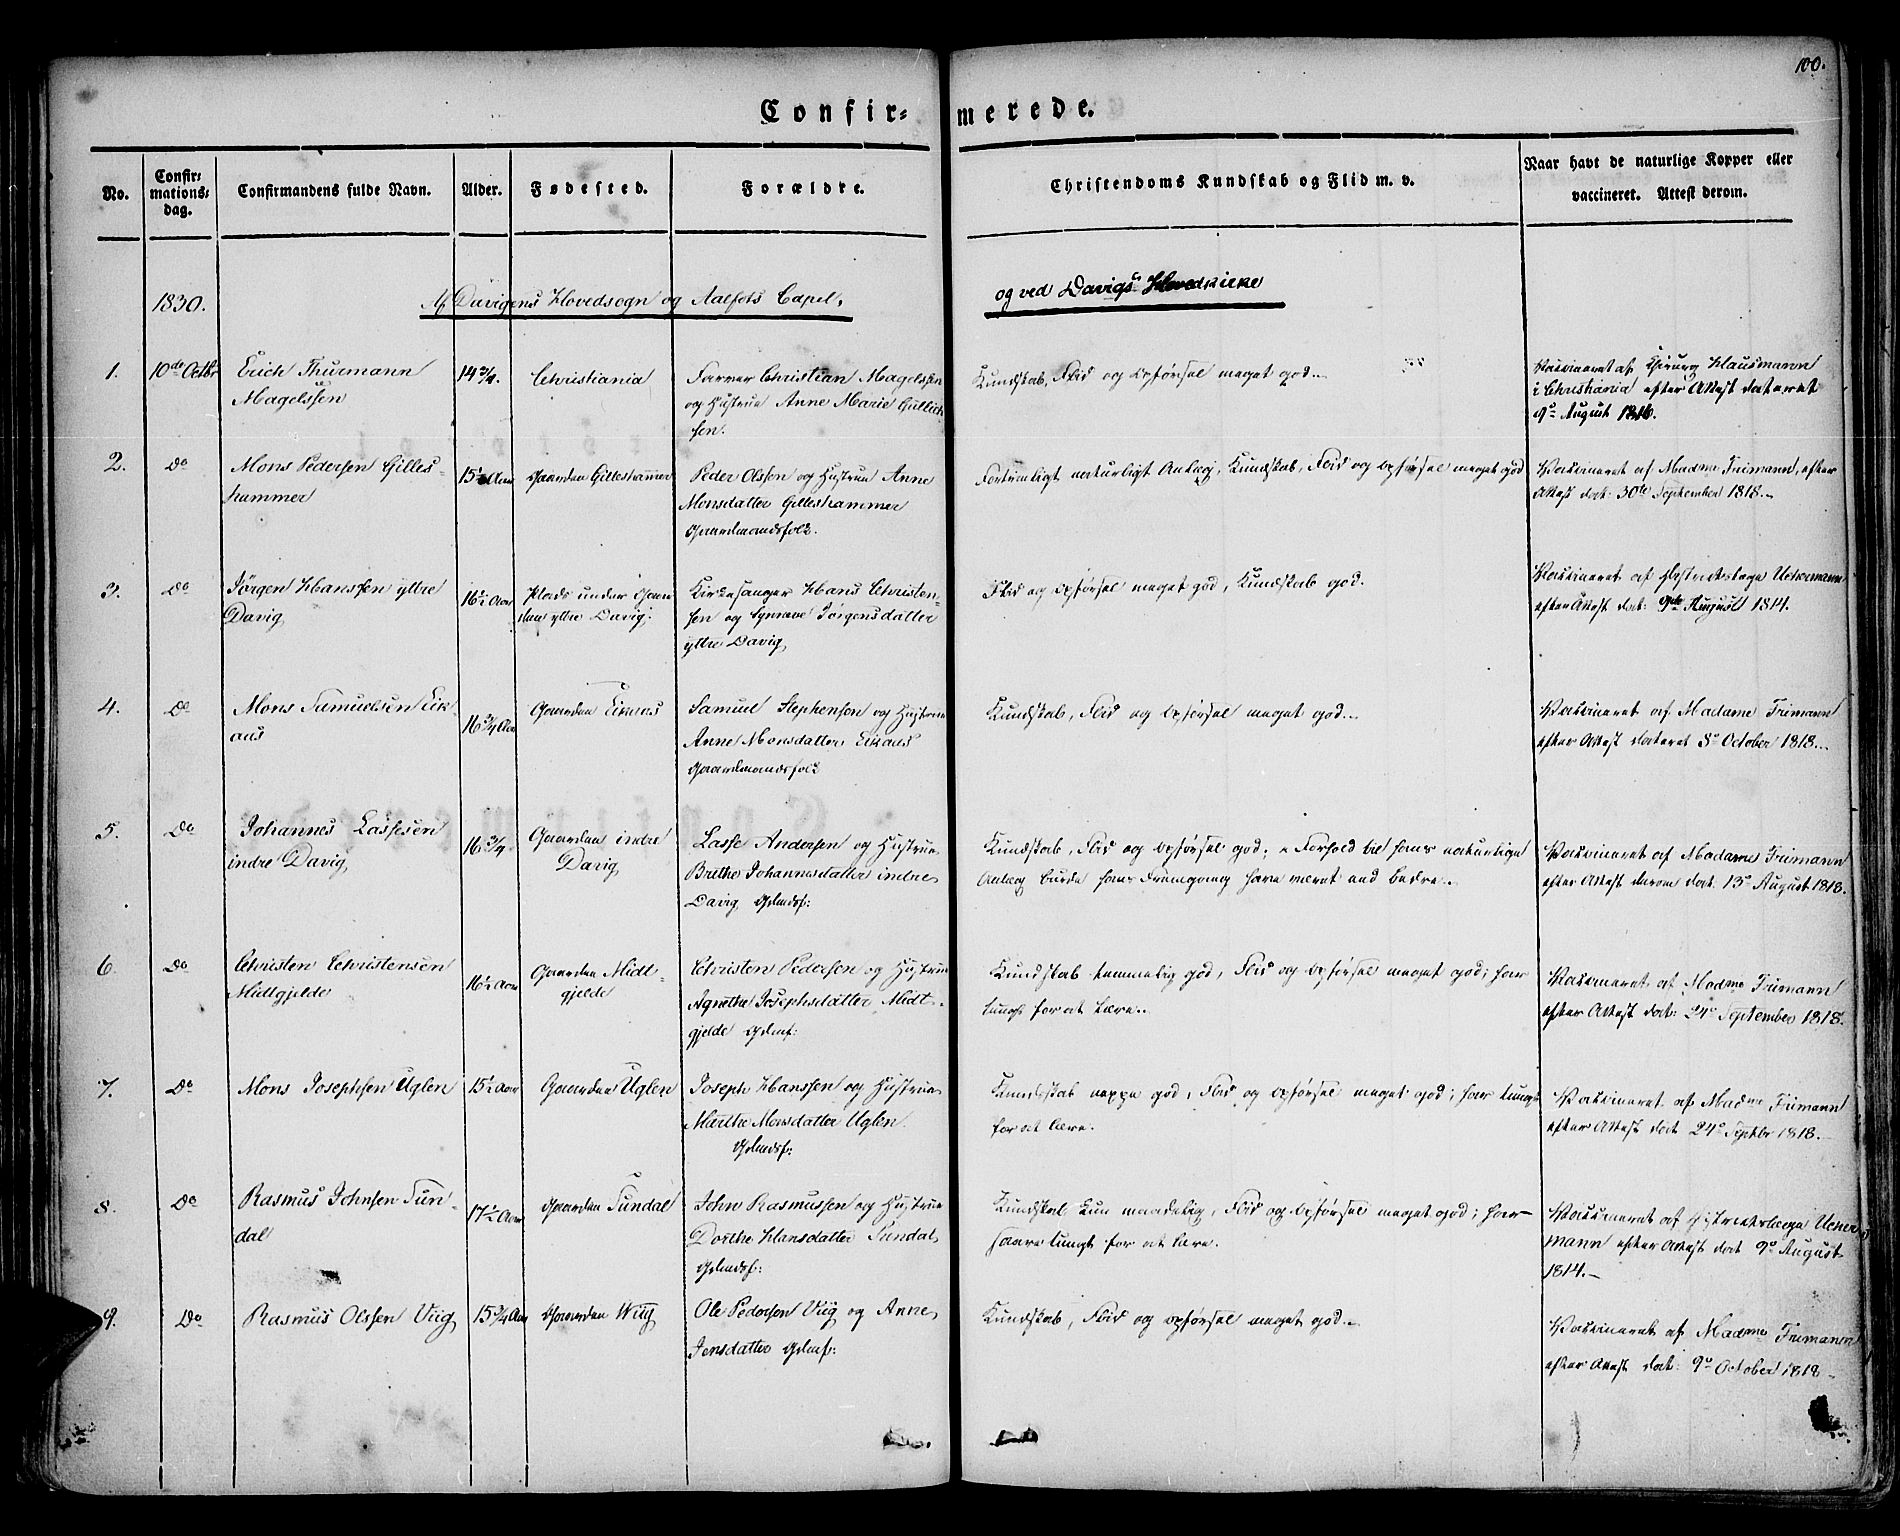 100.
Confir= merede.
No.
Confir=
mations=
dag.
Confirmandens fulde Navn.
Alder.
Fødested.
Forældre.
Christendoms Kundskab og Flid m. v.
Naar havt de naturlige Kopper eller
vaccineret. Attest derom.
1830.
Af Davigens Hovedsogn og Aalfots Capel,
og ved Davigs Hovedkirke
1.
10de Octbr
Erich Thurmann
Magelssen
14 3/4.
Christiania
Farver Christian Magelssen
og Hustrue Anne Marie Gullich
sen.
Kundskab, Flid og Opførsel meget god.
Vaccineret af Chirurg Klausmann
i Christiania efter Attest dateret
9de August 1816.
2.
Do
Mons Pedersen Gilles-
hammer
15 1/2 Aar
Gaarden Gilleshammer
Peder Olssen og Hustrue Anne
Monsdatter Gilleshammer
Gaardmandsfolk.
Fortrinligt naturligt Anlæg, Kundskab, Flid og Opførsel meget god
Vaccineret af Madme Frimann, efter
Attest dat: 30te September 1818.
3.
Do
Jørgen Hanssen yttre
Davig
16 1/2 Aar
Plads under Gaar
den yttre Davig.
Kirkesanger Hans Christen-
sen og Synneve Jørgensdatter
yttre Davig
Flid og Opførsel meget god, Kundskab god.
Vaccineret af Districtslæge Uchermann
efter Attest dat: 9de August 1814.
4.
Do
Mons Samuelsen Eik-
aas
16 3/4 Aar
Gaarden Eikaas
Samuel Stephensen og Hustrue
Anne Monsdatter Eikaas
Gaardmandsfolk
Kundskab, Flid og Opførsel meget god.
Vaccineret af Madame Frimann
efter Attest dateret 8de October 1818.
5.
Do
Johannes Lassesen
indre Davig,
16 3/4.
Gaarden indre
Davig
Lasse Andersen og Hustrue
Brithe Johannesdatter indre
Davig Grmdsf:
Kundskab, Flid og Opførsel god; i Forhold til hans naturlige
Anlæg burde hans Fremgang have været end bedre.
Vaccineret af Madame Frimann
efter Attest derom dat: 13de August 1818.
6.
Do
Christen Christensen
Midtgjelde
16 1/2 Aar
Gaarden Midt-
gjelde
Christen Pedersen og Hustrue
Agnethe Josephsdatter Midt-
gjelde Grmdsf:
Kundskab temmelig god, Flid og Opførsel meget god; har
tungt for at lære.
Vaccineret af Madme Frimann
efter Attest dat: 24de September 1818.
7.
Do
Mons Josephsen Uglen
15 1/2 Aar
Gaarden Uglen
Joseph Hanssen og Hustrue
Marthe Monsdatter Uglen.
Grmdsf:
Kundskab neppe god, Flid og Opførsel meget god; har tungt
for at lære.
Vaccineret af Madme Frimann
efter Attest dat 24de Septbr 1818.
8.
Do
Rasmus Johnsen Tun-
dal
17 1/2 Aar
Gaarden Tundal
John Rasmussen og Hustrue
Dorthe Hansdatter Tundal
Grmdsf:
Kundskab kun maadelig, Flid og Opførsel meget god; har
saare tungt for at lære.
Vaccineret af Districtslæge Ucher
mann efter Attest dat 9de August
1814.
9.
Do
Rasmus Olssen Viig
15 3/4 Aar
Gaarden Wiig
Ole Pedersen Viig og Anne
Jensdatter Grmdsf:
Kundskab, Flid og Opførsel meget god.
Vaccineret af Madme Frimann
efter Attest dat: 9de October 1818